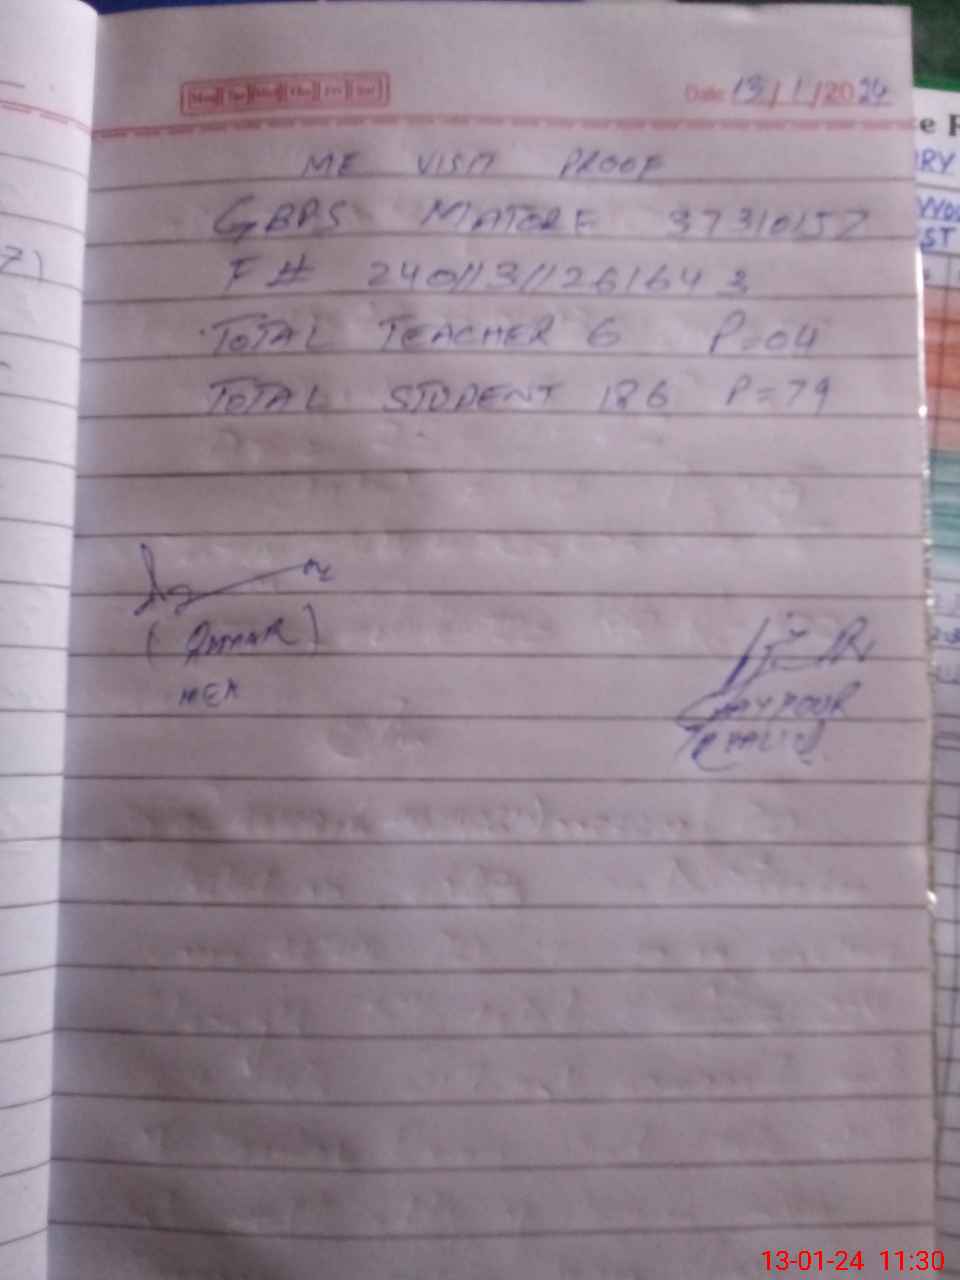 Mon Tue Wed Thu Fri Sat
Date: 13/1/2024
ME VISIT PROOF
GBPS MATORE 37310157
F# 240//3//261643
TOTAL TEACHER 6 P=04
TOTAL STUDENT 126 P=79
(AMMAR)
MEA
e F
RY
ST
13-01-24 11:30